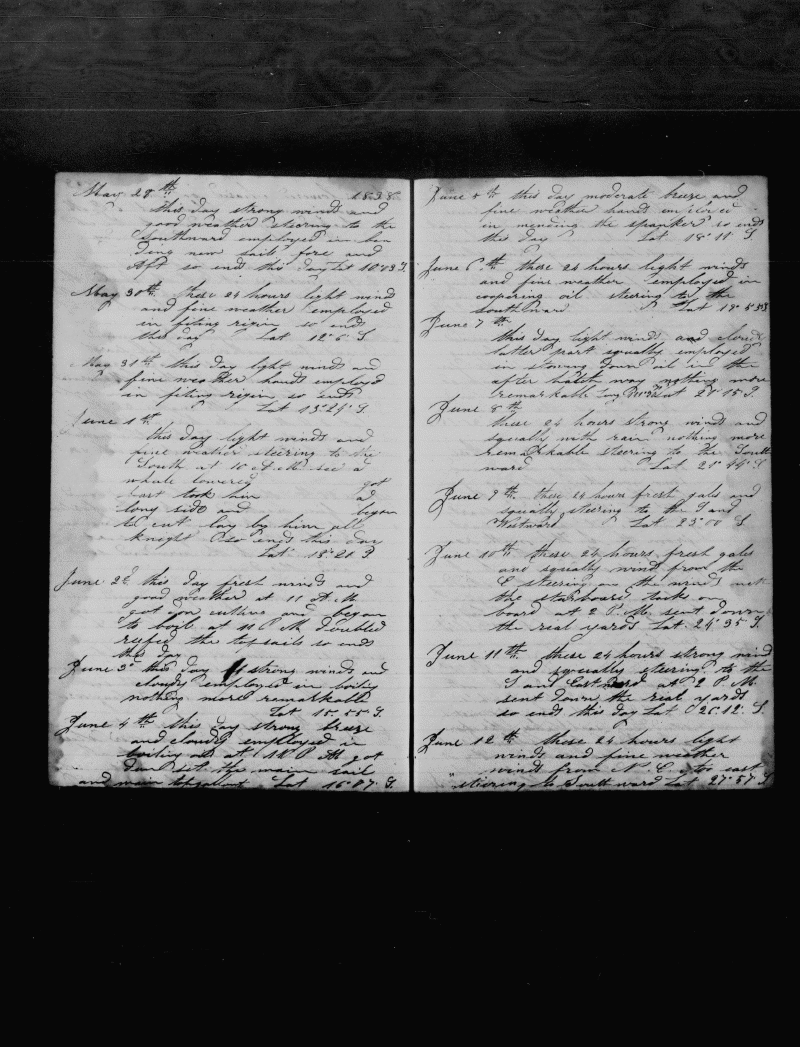 May 29th 1838
this day strong winds and
good weather stearing to the
Southward employed in ben
ding new sail fore and
Aft so ends this day Lat 10°03 S.
May 30th these 24 hours light wind
and fine weather employed
in fiting rigin so ends
this day Lat 12°0 S
May 31th this day light winds and
fine weather hands employd
in fiting rigin so ends
Lat 13°24 S.
June 1th
this day light winds and
fine weather stearing to the
South at 10 A.M see a
whale lowered got
fast took him
long side and began
to cut lay by him all
knight so ends this day
Lat
June 2d this day fresh winds and
good weather at 11 A.M.
got don cutting and began
to boil at M doubled
reefed the topsails so ends
this day
June 3d this day strong winds and
cloudy employed in boiling
nothing more remarkable
Lat 15°55 S.
June 4th this day strong breeze
and cloudy employed in
boiling oil at got
don set the main sail
and main topgalant Lat 16°07 S.
June 5th this day moderate breeze and
fine weather hands employed
in mending the spanker so ends
this day Lat 18°11 S
June 6th these 24 hours light winds
and fine weather employed in
coopering oil steering to the
southward Lat 19°
June 7th
this day light winds and cloudy
latter part squally employed
in stowing down oil in the
after hatch way nothing more
remarkable Lat 20°15 S.
June 8th
these 24 hours strong winds and
squally with rain nothing more
remarkable steering to the South
ward Lat 21°44 S
June 9th these 24 hours fresh gales and
squally steering to the S and
Westward Lat 23°00 S
June 10th these 24 hours fresh gales
and squally wind from the
E steering on the wind with
the starboard tack on
board at 2 P.M. sent down
the roial yards Lat 24°35 S.
June 11th these 24 hours strong wind
and squally steering to the
S and Eastward at 2 P.M
sent down the roial yards
so ends this day Lat 26°12 S.
June 12th these 24 hours light
winds and fine weather
winds from N E. to east
steering to Southward Lat 27°57 S